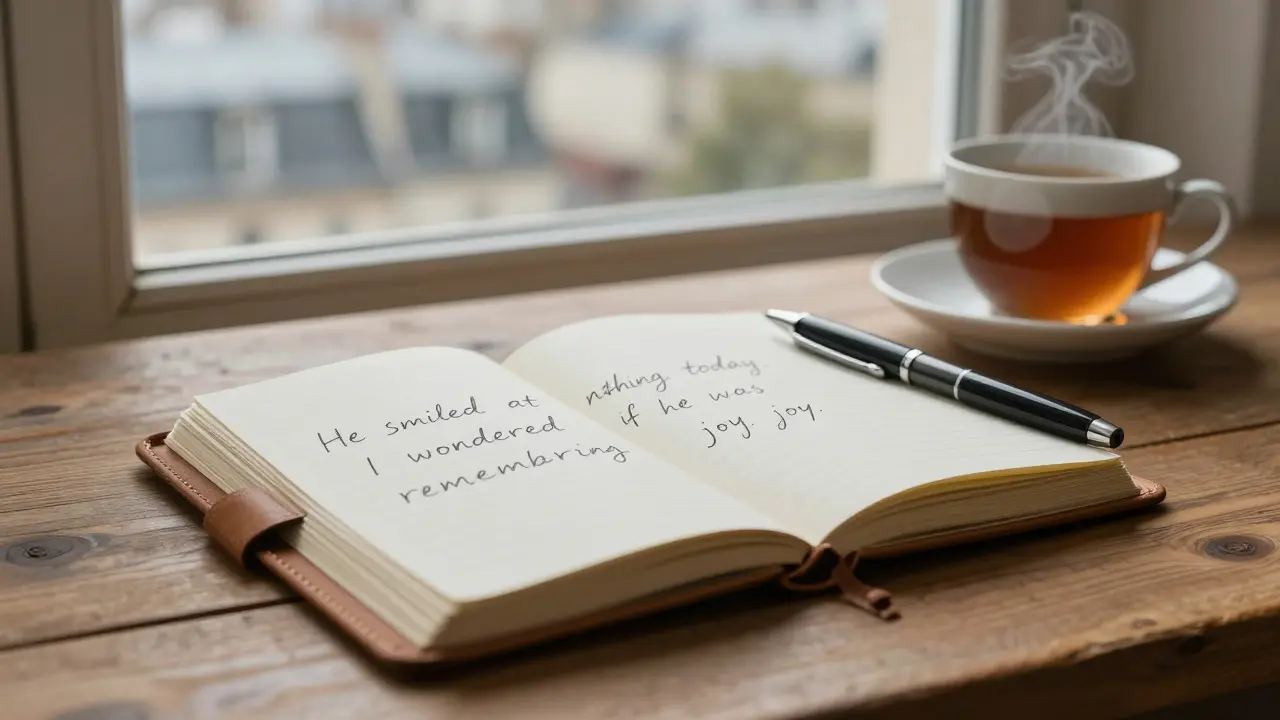 He smiled at nthing today.
I wondered if he was
remembring joy. joy.